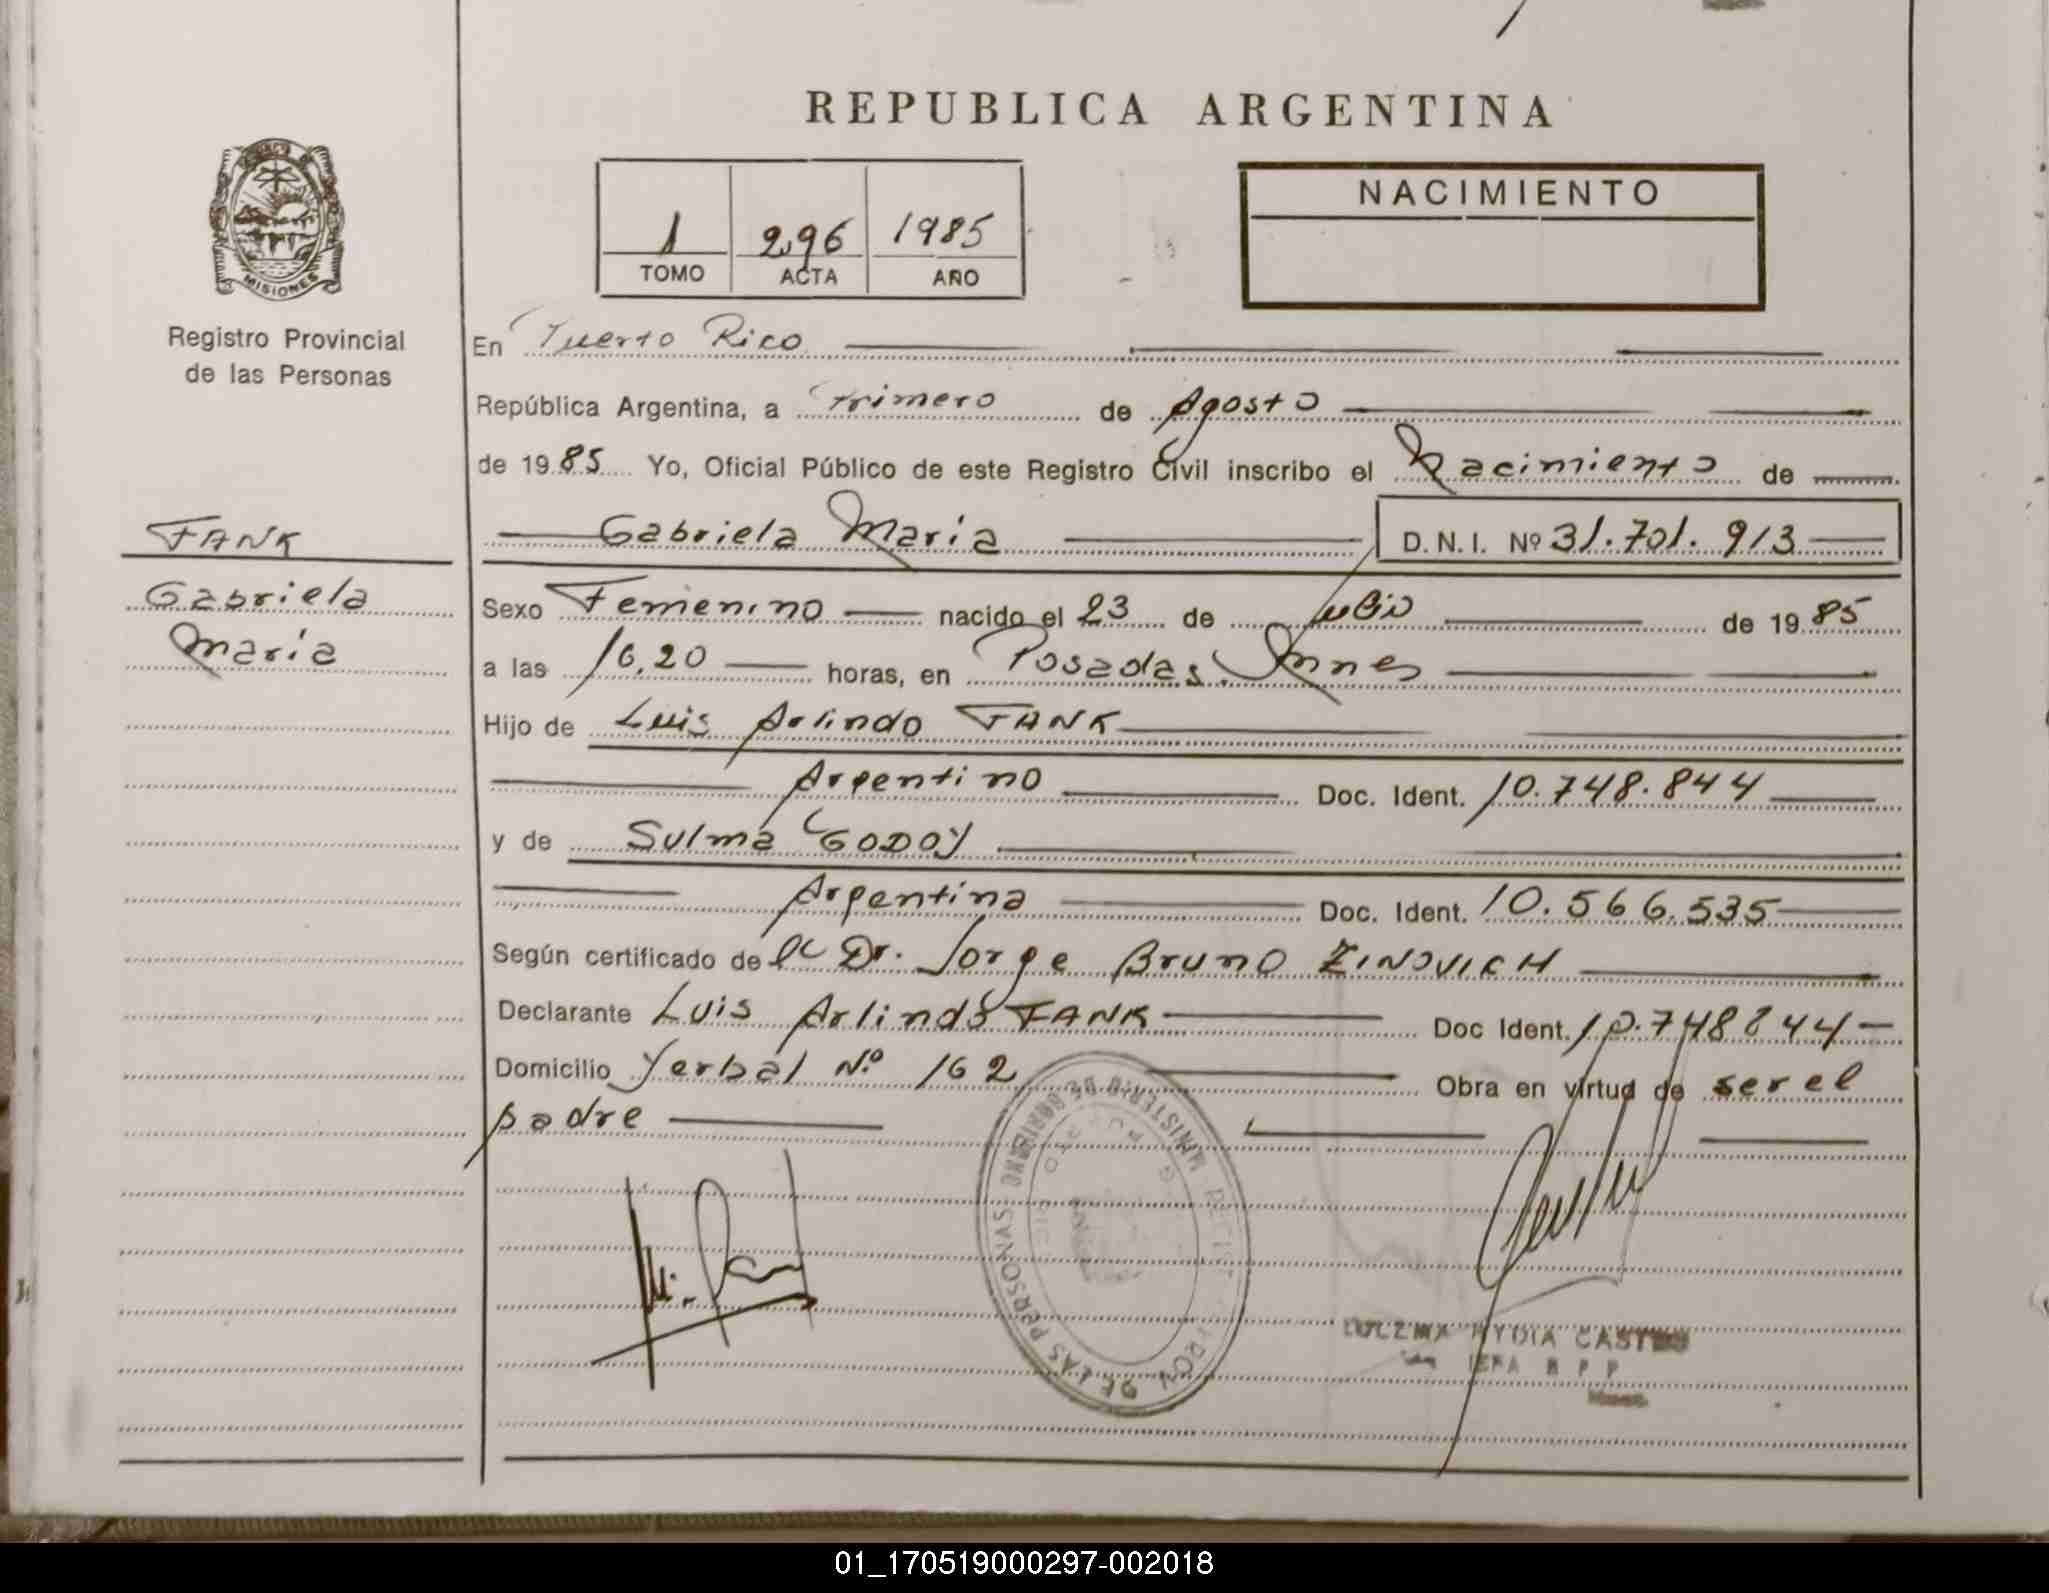 REPUBLICA ARGENTINA
MISIONES
Registro Provincial
de las Personas
1 296 1985
TOMO ACTA AÑO
NACIMIENTO
En Puerto Rico
República Argentina, a Primero de Agosto
de 1985 Yo, Oficial Público de este Registro Civil inscribo el Nacimiento de
FANK
Gabriela
Maria
Gabriela María D.N.I. Nº 31.701.913
Sexo Femenino nacido el 23 de Julio de 1985
a las 16,20 horas, en Posadas Mnes
Hijo de Luis Arlindo FANK
Argentino Doc. Ident. 10.748.844
y de Sulma GODOY
Argentina Doc. Ident. 10.566.535
Según certificado de el Dr. Jorge Bruno ZINOVICH
Declarante Luis Arlindo FANK Doc Ident. 10.748844
Domicilio Yerbal Nº 162 Obra en virtud de ser el
padre
MINISTERIO DE GOBIERNO
DE LAS PERSONAS
CASTRO
01_170519000297-002018